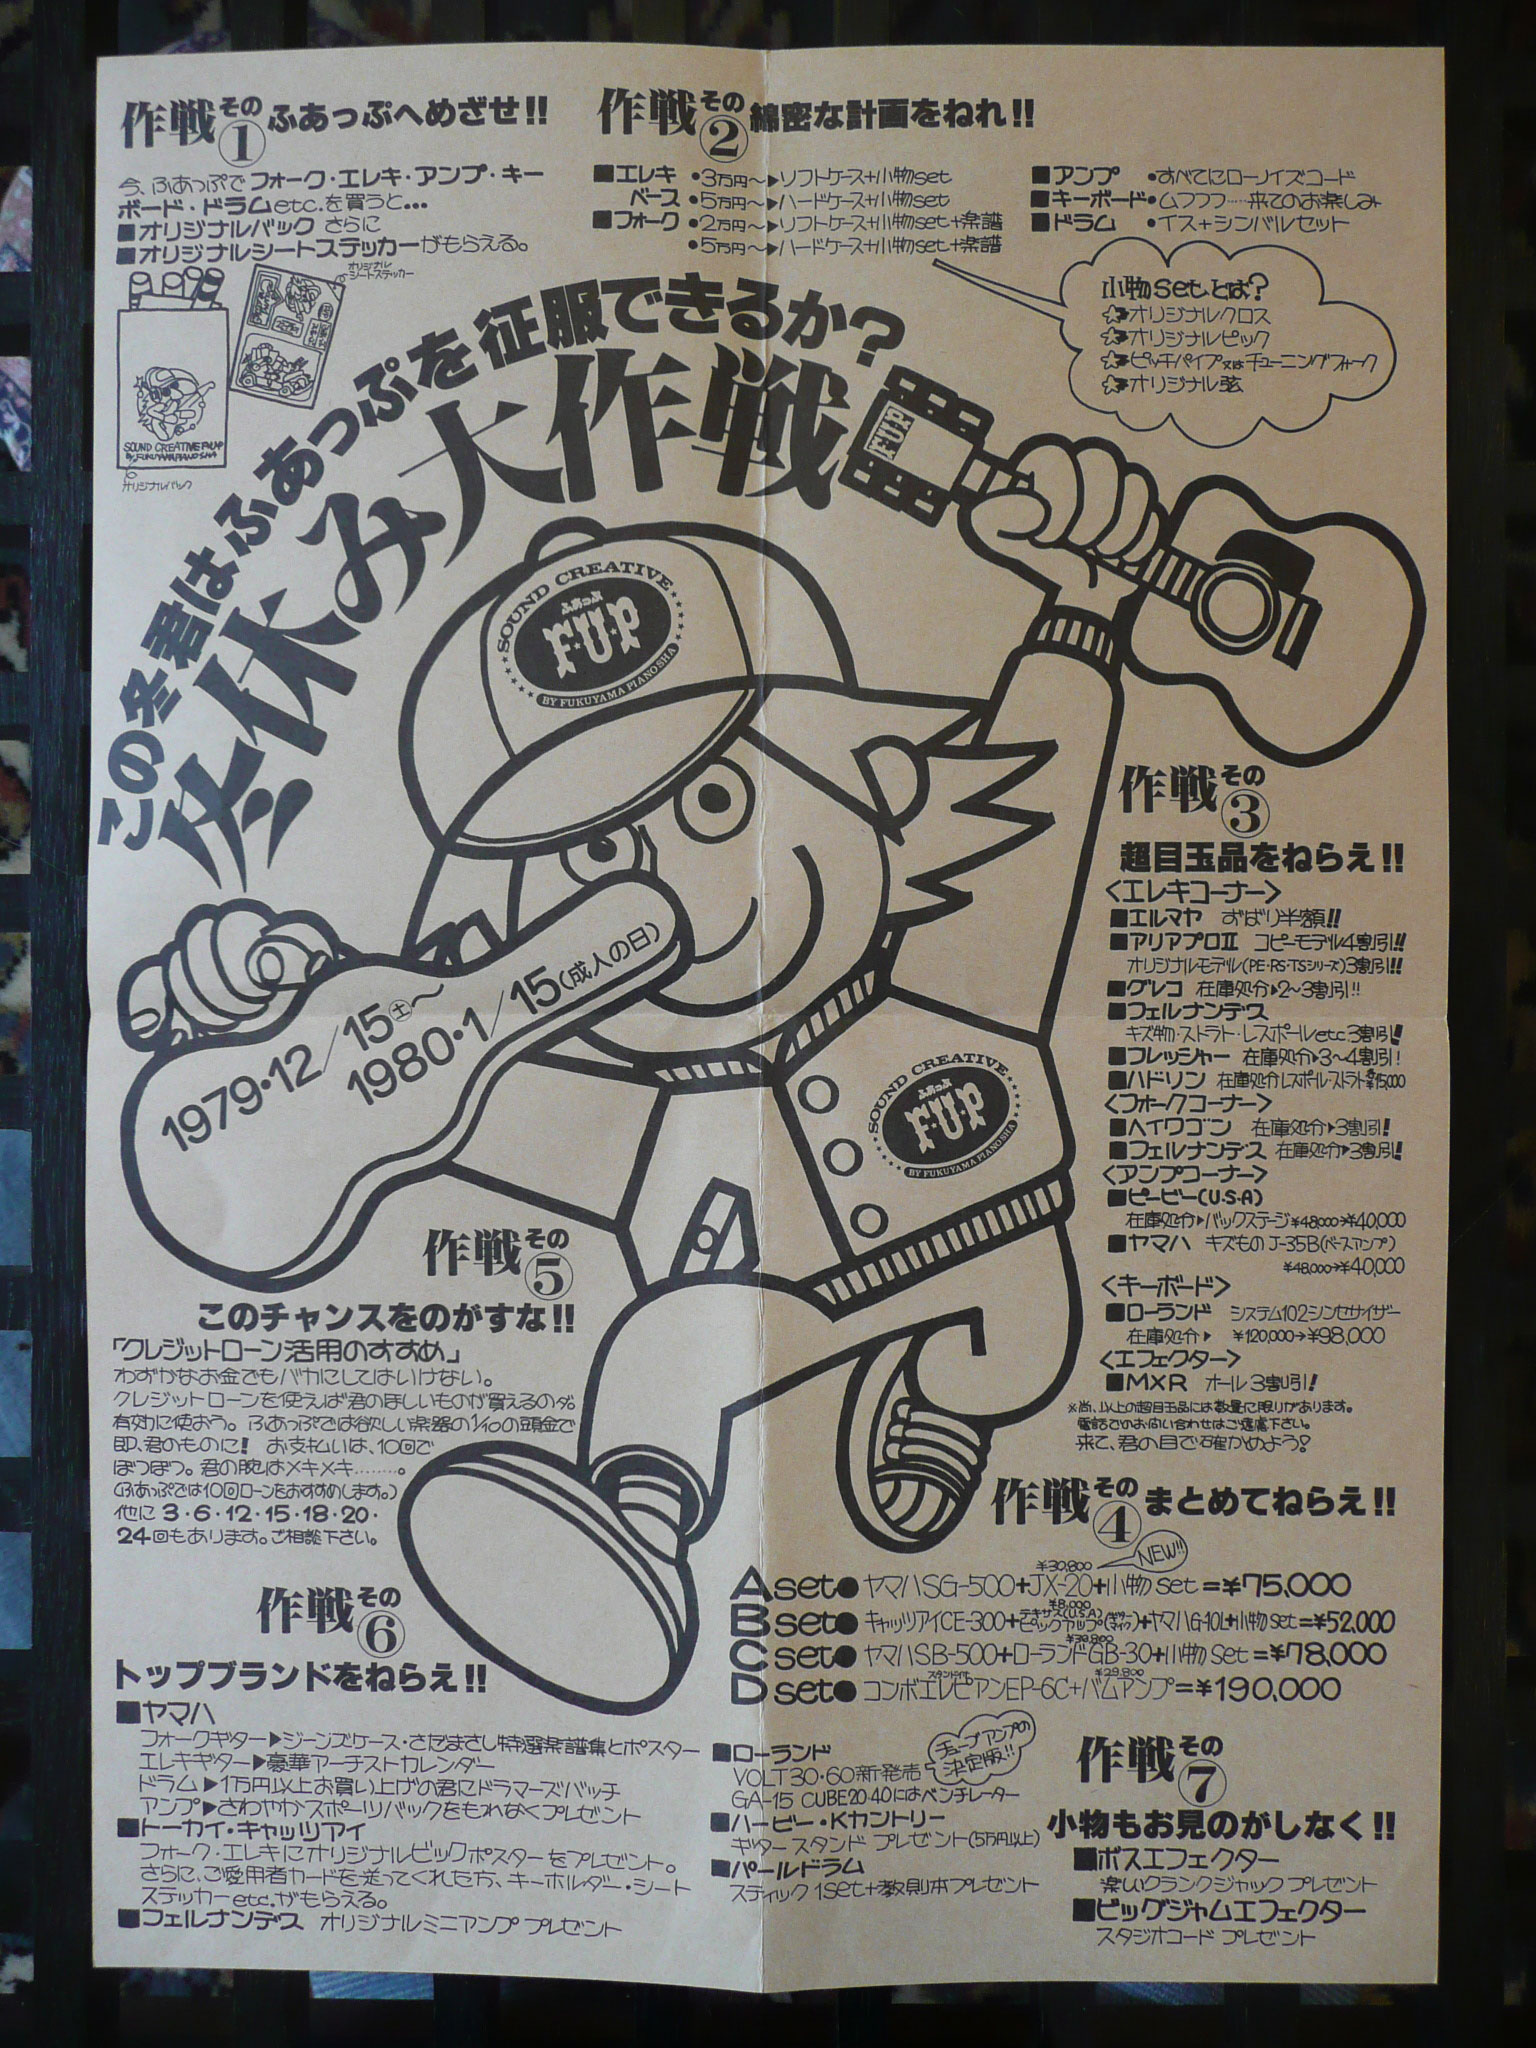 作戦その①ふあっぷへめざせ!!
今、ふあっぷでフォーク・エレキ・アンプ・キー
ボード・ドラムetc.を買うと…
■オリジナルバック さらに
■オリジナルシートステッカーがもらえる。
オリジナル
シートステッカー
SOUND CREATIVE F.U.P
BY FUKUYAMA PIANO SHA
オリジナルバック
作戦その②綿密な計画をねれ!!
■エレキ •3万円〜▶ソフトケース+小物set
ベース •5万円〜▶ハードケース+小物set
■フォーク •2万円〜▶ソフトケース+小物set+楽譜
•5万円〜▶ハードケース+小物set+楽譜
■アンプ •すべてにローノイズコード
■キーボード•ムフフフ……来てのお楽しみ
■ドラム •イス+シンバルセット
小物set.とは?
☆オリジナルクロス
☆オリジナルピック
☆ピッチパイプ又はチューニングフォーク
☆オリジナル弦
この冬君はふあっぷを征服できるか?
冬休み大作戦
F.U.P
SOUND CREATIVE
ふあっぷ
F.U.P
BY FUKUYAMA PIANO SHA
1979・12/15(土)〜
1980・1/15(成人の日)
SOUND CREATIVE
ふあっぷ
F.U.P
BY FUKUYAMA PIANO SHA
作戦その③
超目玉品をねらえ!!
<エレキコーナー>
■エルマヤ ずばり半額!!
■アリアプロII コピーモデル4割引!!
オリジナルモデル(PE・RS・TSシリーズ)3割引!!
■グレコ 在庫処分▶2〜3割引!!
■フェルナンデス
キズ物・ストラト・レスポールetc.3割引!
■フレッシャー 在庫処分▶3〜4割引!
■ハドソン 在庫処分レスポール・ストラト各¥15,000
<フォークコーナー>
■ヘイワゴン 在庫処分▶3割引!
■フェルナンデス 在庫処分▶3割引!
<アンプコーナー>
■ピービー(U.S.A)
在庫処分▶バックステージ¥48,000→¥40,000
■ヤマハ キズもの J-35B(ベースアンプ)
¥48,000→¥40,000
<キーボード>
■ローランド システム102シンセサイザー
在庫処分▶ ¥120,000→¥98,000
<エフェクター>
■MXR オール3割引!
※尚、以上の超目玉品には数量に限りがあります。
電話でのお問い合わせはご遠慮下さい。
来て、君の目で確かめよう!
作戦その④まとめてねらえ!!
NEW!!
¥30,800
Aset●ヤマハSG-500+JX-20+小物set=¥75,000
¥8,000
Bset●キャッツアイCE-300+テキサス(U.S.A)ピックアップ(ギターマイク)+ヤマハG-10L+小物set=¥52,000
¥39,800
Cset●ヤマハSB-500+ローランドGB-30+小物set=¥78,000
スタンド付 ¥29,800
Dset●コンボエレピアンEP-6C+バムアンプ=¥190,000
作戦その⑤
このチャンスをのがすな!!
「クレジットローン活用のすすめ」
わずかなお金でもバカにしてはいけない。
クレジットローンを使えば君のほしいものが買えるのダ。
有効に使おう。ふあっぷでは欲しい楽器の1/10の頭金で
即、君のものに! お支払いは、10回で
ぼつぼつ。君の腕はメキメキ………。
(ふあっぷでは10回ローンをおすすめします。)
他に 3・6・12・15・18・20・
24回もあります。ご相談下さい。
作戦その⑥
トップブランドをねらえ!!
■ヤマハ
フォークギター▶ジーンズケース・さだまさし特選楽譜集とポスター
エレキギター▶豪華アーチストカレンダー
ドラム▶1万円以上お買い上げの君にドラマーズバッチ
アンプ▶さわやかスポーツバックをもれなくプレゼント
■トーカイ・キャッツアイ
フォーク・エレキにオリジナルビックポスターをプレゼント。
さらに、ご愛用者カードを送ってくれた方、キーホルダー・シート
ステッカーetc.がもらえる。
■フェルナンデス オリジナルミニアンプ プレゼント
■ローランド
VOLT30・60新発売
チューブアンプの
決定版!!
GA-15 CUBE20・40にはベンチレーター
■ハービー・Kカントリー
ギタースタンド プレゼント(5万円以上)
■パールドラム
スティック1set+教則本プレゼント
作戦その⑦
小物もお見のがしなく!!
■ボスエフェクター
楽しいクランクジャック プレゼント
■ビッグジャムエフェクター
スタジオコード プレゼント